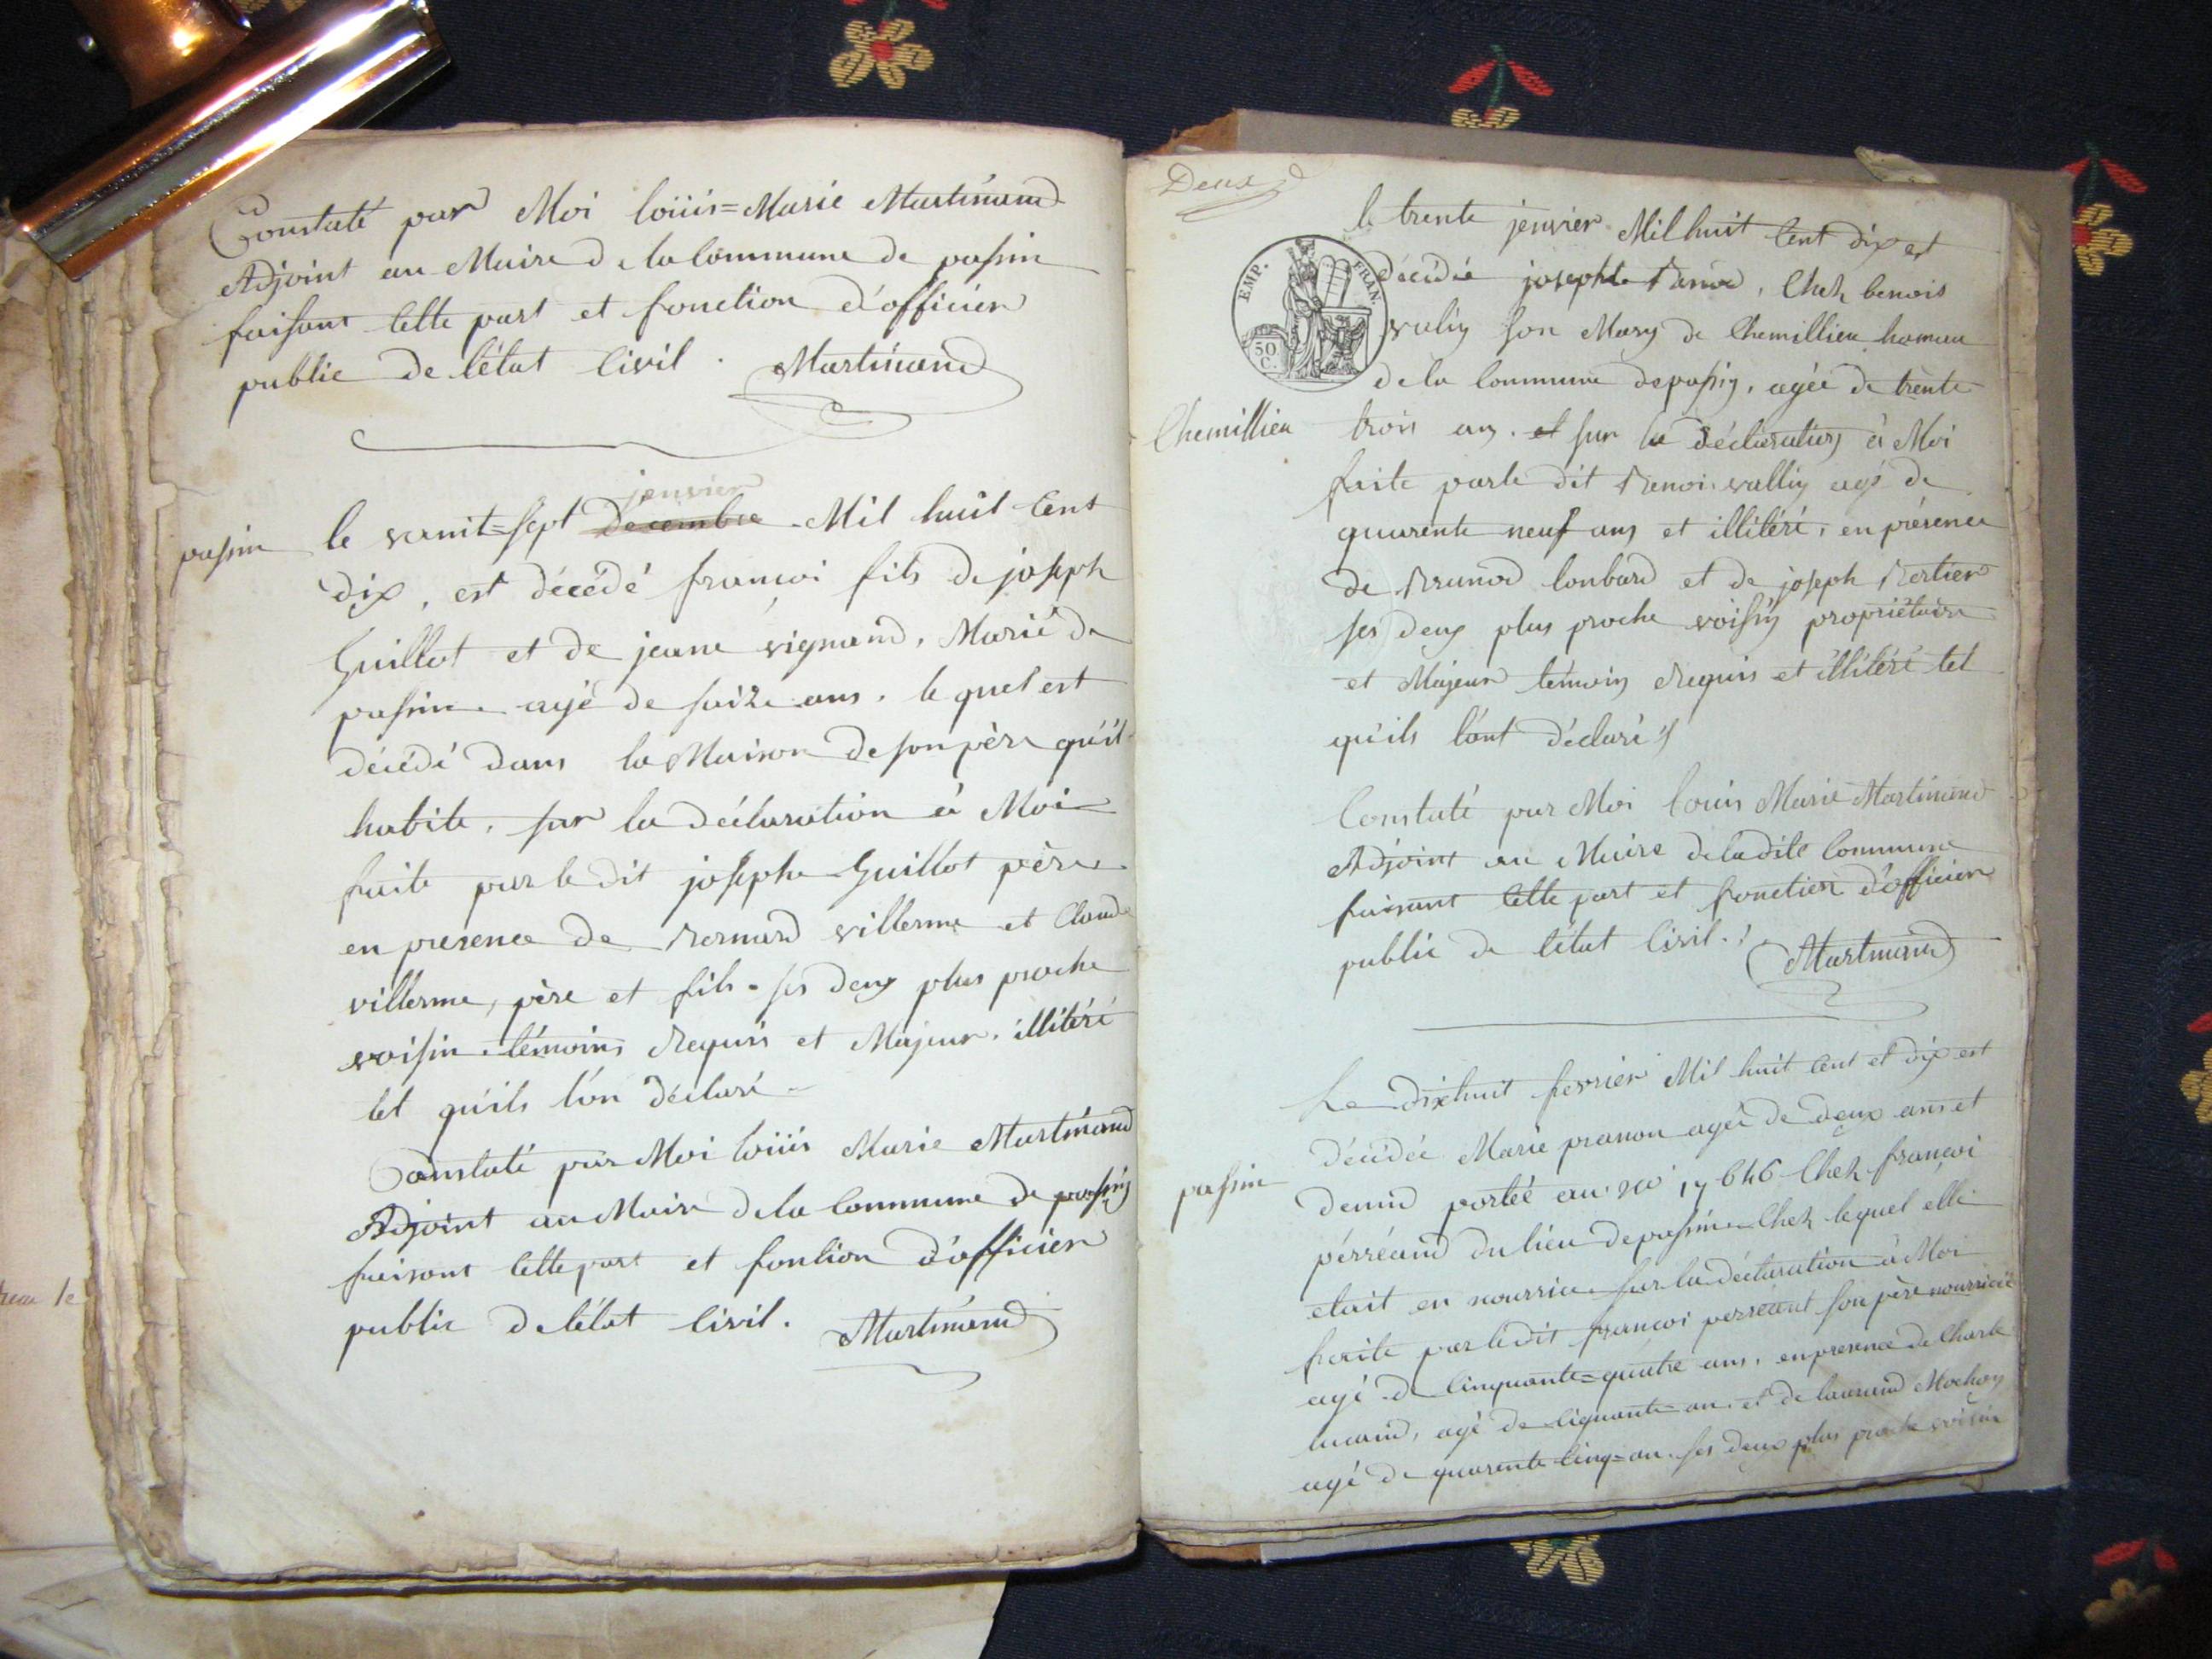 Constaté par Moi loüis=Marie Martinand
Adjoint au Maire de la Commune de passin
faisant Cette part et fonction d'officier
public de l'état Civil. Martinand
passin
le vamit=sept Decembre janvier Mil huit Cent
dix, est décédé francoi fils de joseph
Guillot et de jeane vignand, Marié de
passin agé de saize ans. le quel est
décédé dans la Maison de son père qu'il
habite, sur la déclaration à Moi
faite par le dit joseph Guillot père
en presence de Bernard villerme et Claude
villerme, père et fils = ses deux plus proche
voisin témoins requis et Majeur. illitéré
tel qu'ils l'on déclaré
Constaté par Moi loüis Marie Martinand
Adjoint au Maire de la Commune de passin
faisant Cette part et fontion d'officier
public de l'état Civil. Martinand
reau le
Deux
EMP. FRAN.
50 C.
le trente jenvier Mil huit Cent dix est
décédée josephte, Chez benois
vallin son Mary de Chemillieu hameau
de la Commune de passin, agée de trente
Chemillieu
trois ans. et sur la déclaration à Moi
faite par le dit Benoi vallin agé de
quarente neuf ans et illitéré, en présence
de Brunod lonbard et de joseph Bertier
ses deux plus proche voisin propriétaire
et Majeur témoin requis et illitéré tel
qu'ils l'ont déclaré
Constaté par Moi Louis Marie Martinand
Adjoint au Maire de la dite Commune
faisant Cette part et fonction d'officier
public de l'état Civil. Martinand
Le dixhuit fevrier Mil huit Cent et dix est
décédée Marie pranon agée de deux ans et
passin
demie portée au no 17646 Chez francoi
pérréand du lieu de passin Chez lequel elle
etait en nourrice sur la déclaration à Moi
faite par le dit francoi perréant son père nourricié
agé de Cinquante=quatre ans, en presence de Charle
lucand, agé de Ciquante an. et de laurand Mochon
agé de quarente Cinq=an. ses deux plus proche voisin